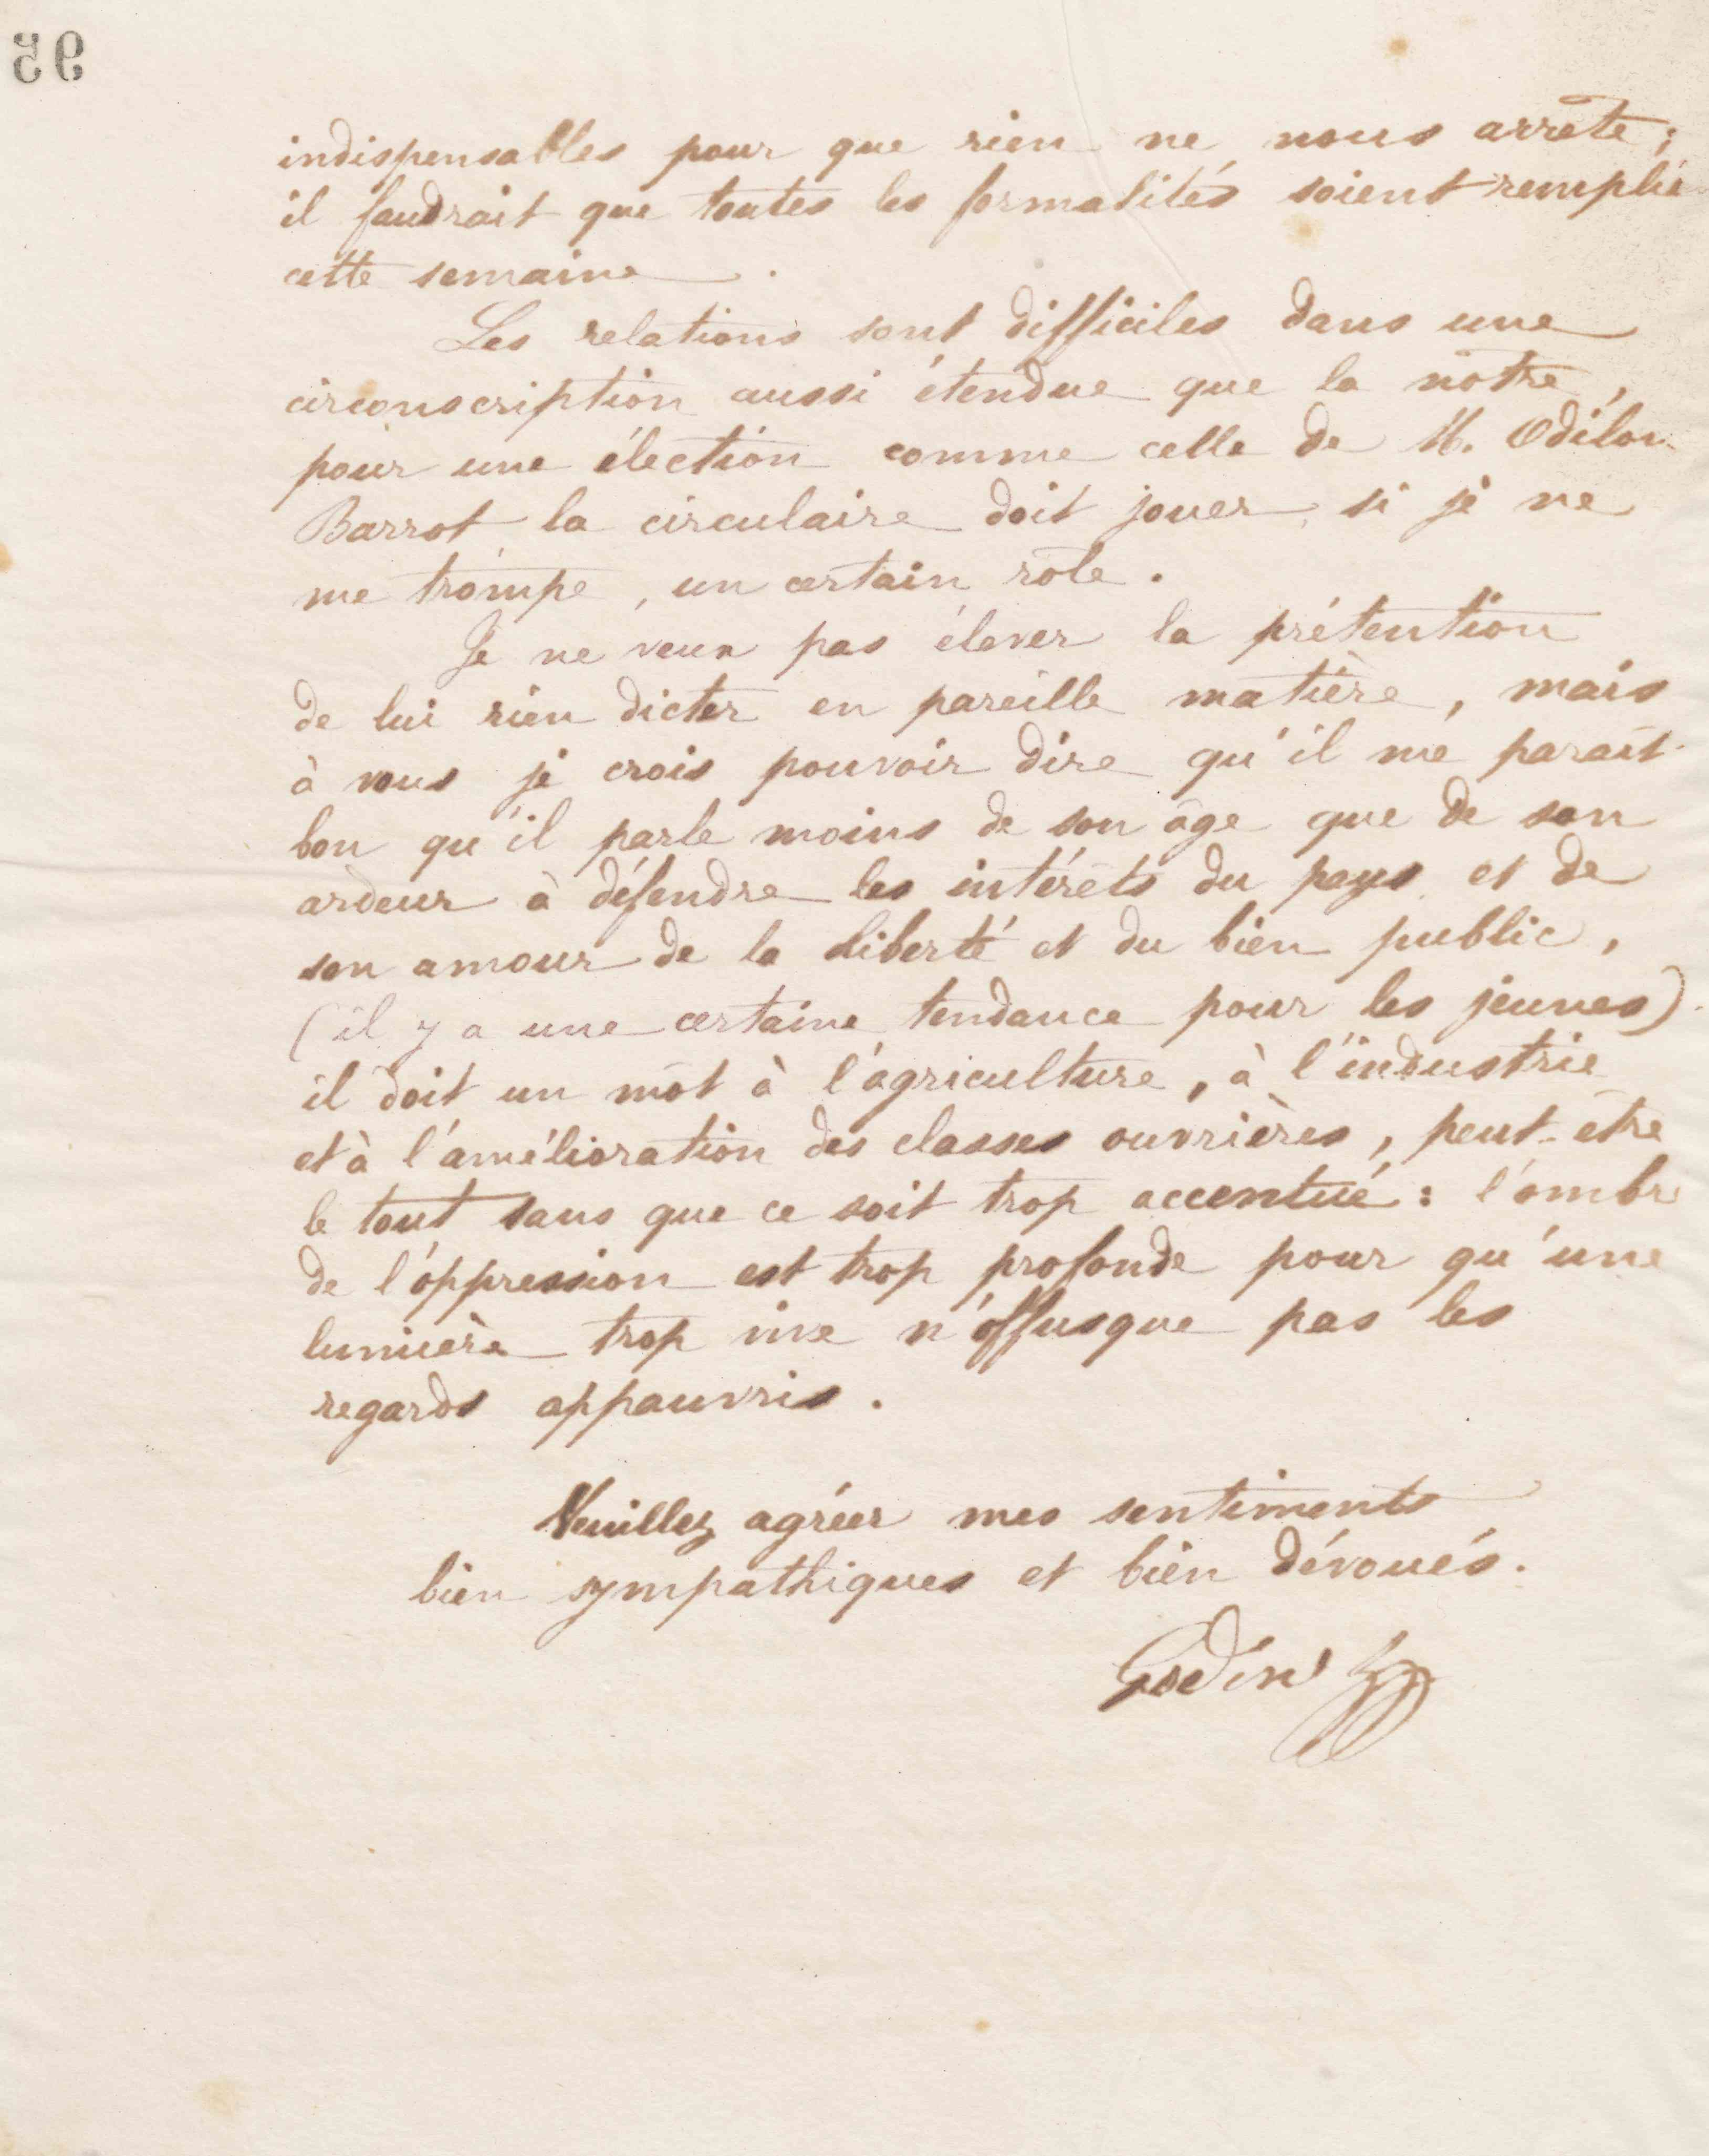 95
indispensables pour que rien ne nous arrête ;
il faudrait que toutes les formalités soient remplie
cette semaine .
Les relations sont difficiles dans une
circonscription aussi étendue que la nôtre ,
pour une élection comme celle de M. Odilon
Barrot la circulaire doit jouer, si je ne
me trompe , un certain rôle .
Je ne veux pas élever la prétention
de lui rien dicter en pareille matière , mais
à vous je crois pouvoir dire qu'il me paraît
bon qu'il parle moins de son âge que de son
ardeur à défendre les intérêts du pays et de
son amour de la liberté et du bien public ,
( il y a une certaine tendance pour les jeunes )
il doit un mot à l'agriculture , à l'industrie
et à l'amélioration des classes ouvrières , peut-être
le tout sans que ce soit trop accentué : l'ombre
de l'oppression est trop profonde pour qu'une
lumière trop vive n'offusque pas les
regards appauvris .
Veuillez agréer mes sentiments
bien sympathiques et bien dévoués .
Godin